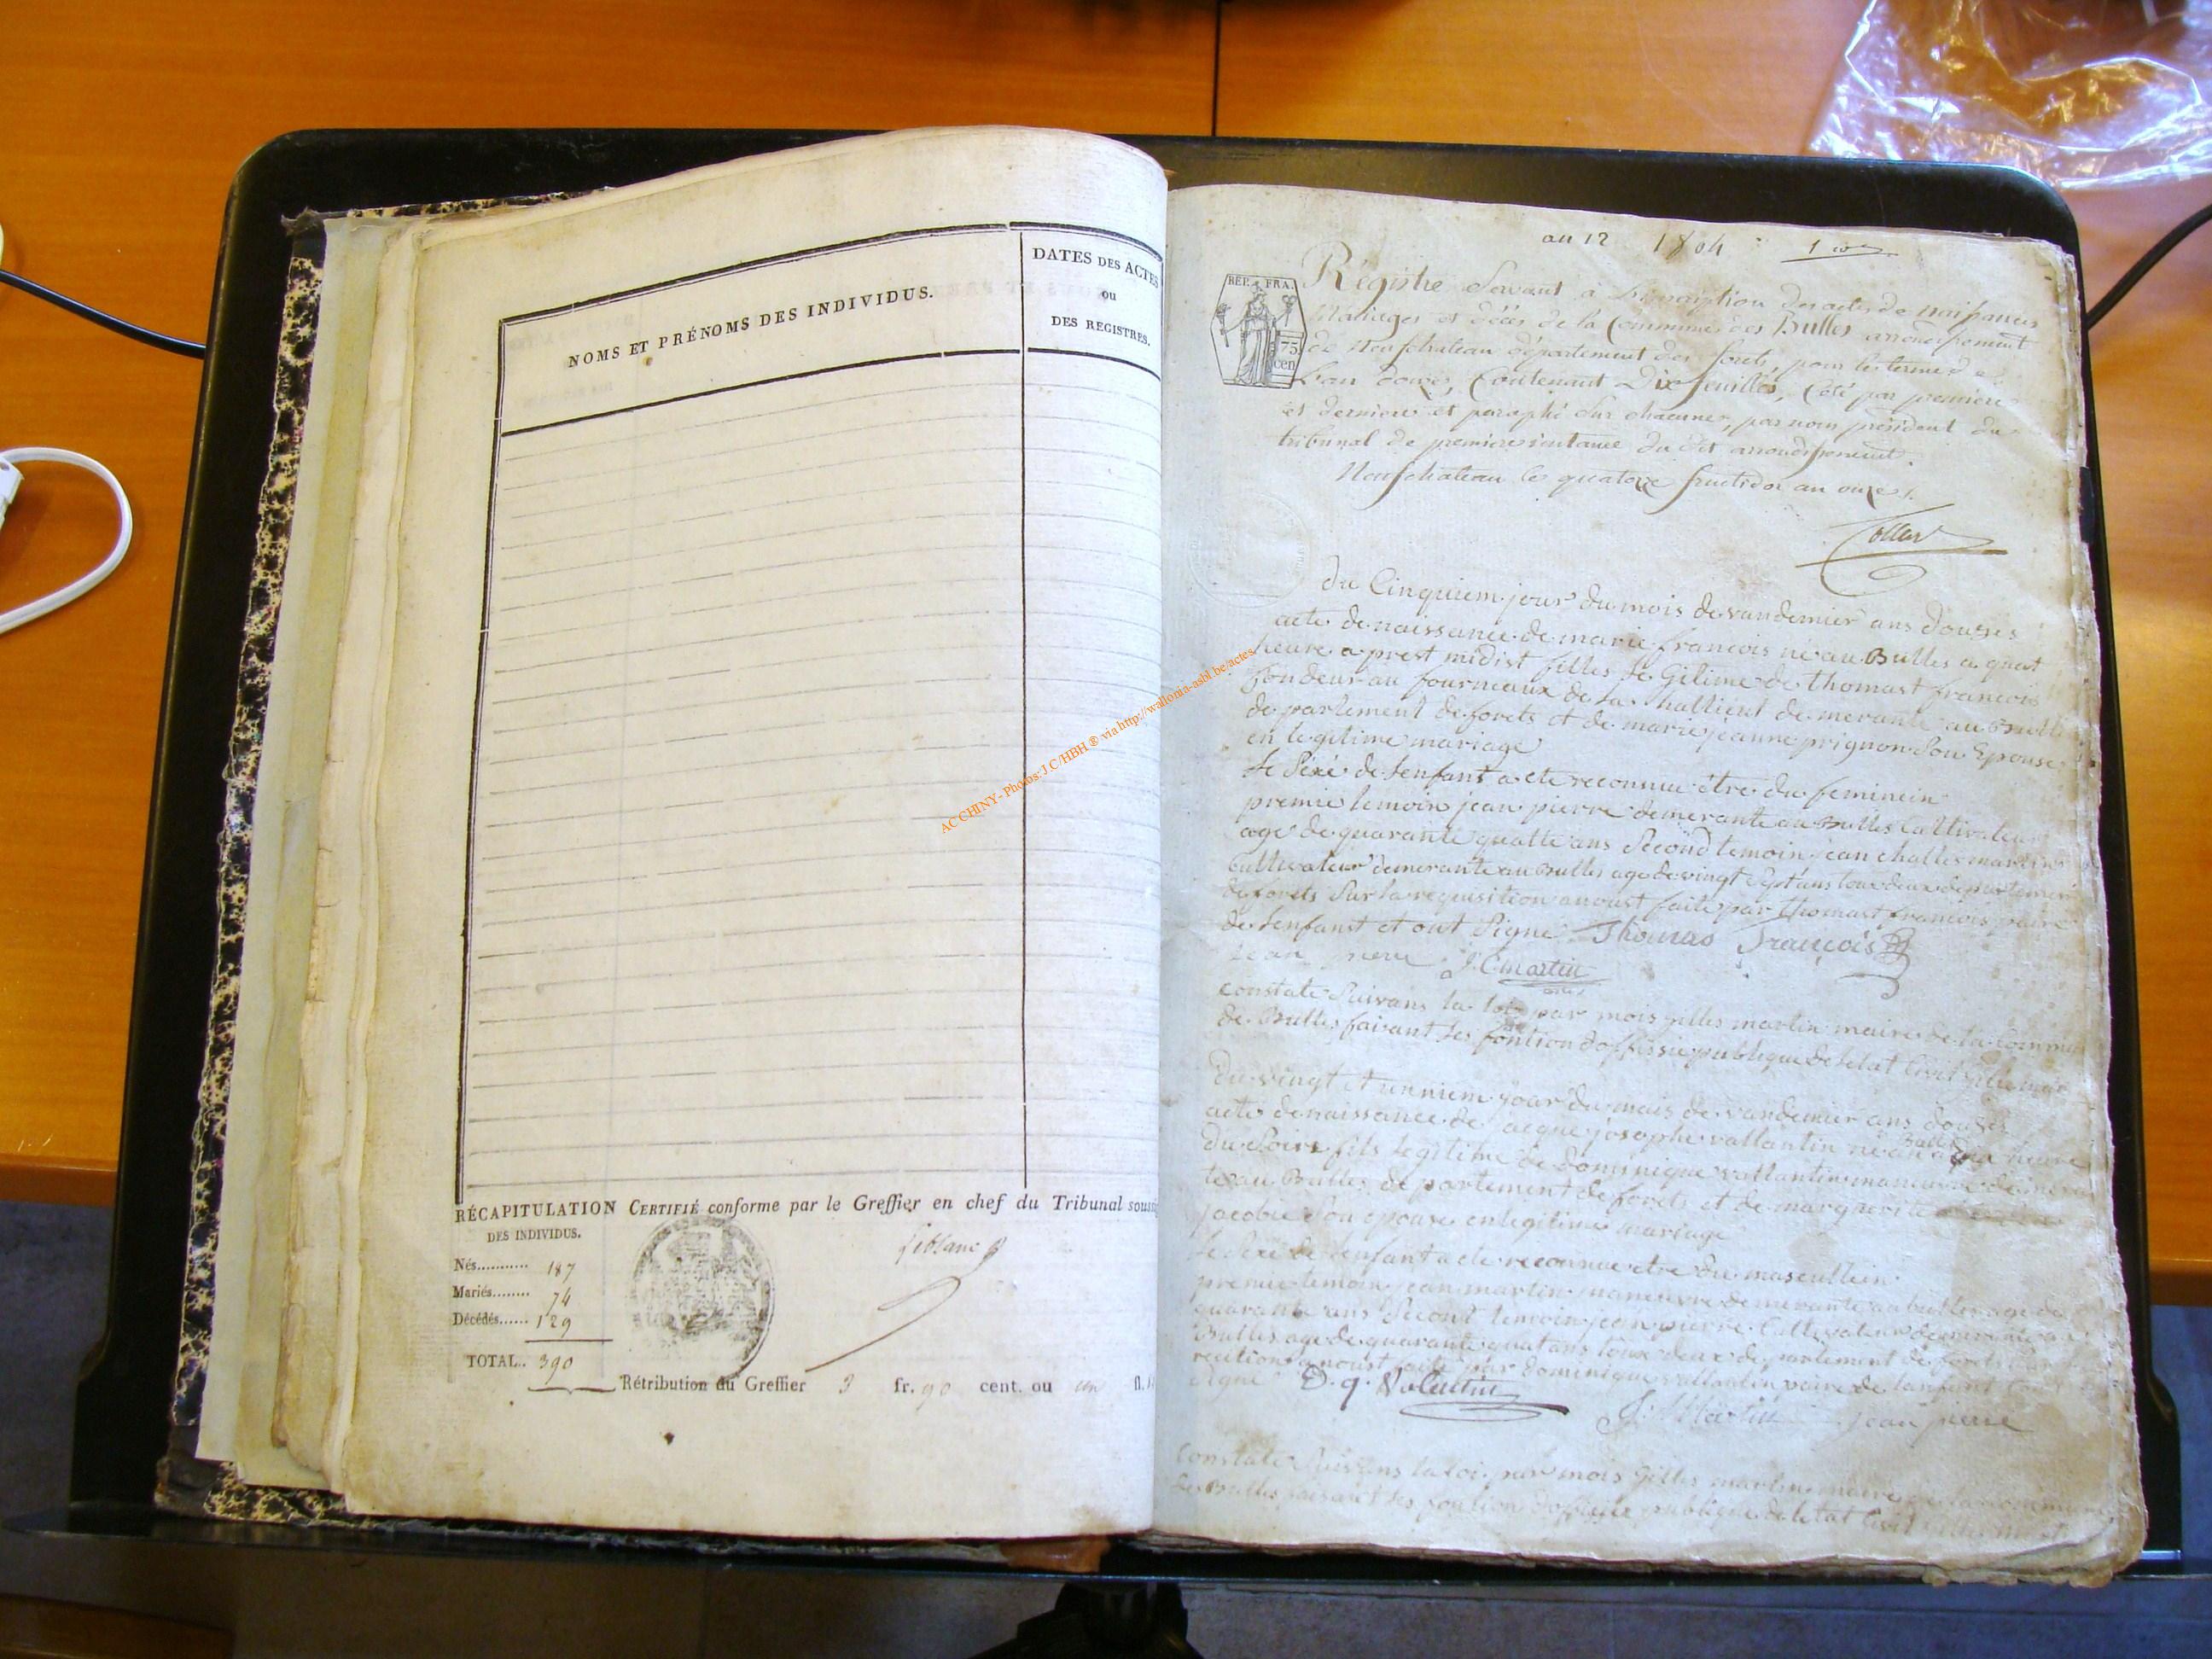 NOMS ET PRÉNOMS DES INDIVIDUS.
DATES DES ACTES
ou
DES REGISTRES.
RÉCAPITULATION
DES INDIVIDUS.
CERTIFIÉ conforme par le Greffier en chef du Tribunal
leblanc
Nés........... 187
Mariés........ 74
Décédés...... 129
TOTAL.. 390
Rétribution du Greffier 3 fr. 90 cent. ou
AC CHINY - Photos: J.C/HBH ® via http://wallonia-asbl.be/actes
an 12 1804
REP. FRA.
75
cen
Registre Servant à l'inscription des actes de naissances
Mariages et décès de la Commune des Bulles arrondissement
de Neufchateau département des forets, pour le terme de
L'an douze, Contenant Dix feuilles, Coté par premiere
et derniere et paraphé sur chacune, par nous président du
tribunal de premiere instance du dit arrondissement.
Neufchateau le quatorze fructidor an onze
Collard
du Cinquiem jour du mois de vandemier ans douzes
acte de naissance de marie francois né au Bulles a quat
heure a prest midist filles le Gilime de thomast francois
fondeur au fourneaux de la de merante au Bulle
de partement de forets et de marie jeanne prignon Son Epouse
en legitime mariage
le Sexé de lenfant a ete reconnue être du feminein
premie temoin jean pierre demerante au Bulles Cultivateur
age de quarante quatte ans Second temoin jean challes martin
Cultivateur demerante au Bulles age de vingt Sept ans toux deux departement
de forets Sur la requisition a noust faite par thomast francois paire
de lenfant et ont Signe Thomas François
jean pierre J C martin
constate Suivans la loi par mois gilles martin maire de la commun
de Bulles faisant les fontion d offissie publique de letat Civil
Du vingt et unniem jour du mois de vandemier ans douzes
acte de naissance de jacque josephe vallantin né au Bulles a heure
du Soire fils legitime de dominique vallantin maneuvre demeran
te au Bulles de partement de forets et de marguerite
jacobie Son epouse en legitime mariage
le Sexé de lenfant a ete reconnue etre du mascullein
premie temoin jean martin maneuvre demerante au bulles age de
quarante ans Second temoin jean pierre Cultivateur demerante a
Bulles age de quarante quat ans toux deux de partement de forets
recition a noust faite par Dominique vallantin paire de lanfant
Signe D. q. Valentin J. Martin jean pierre
constate Suivans la loi par mois Gilles martin maire de la commune
de Bulles faisant les fontion d offissie publique de letat Civil